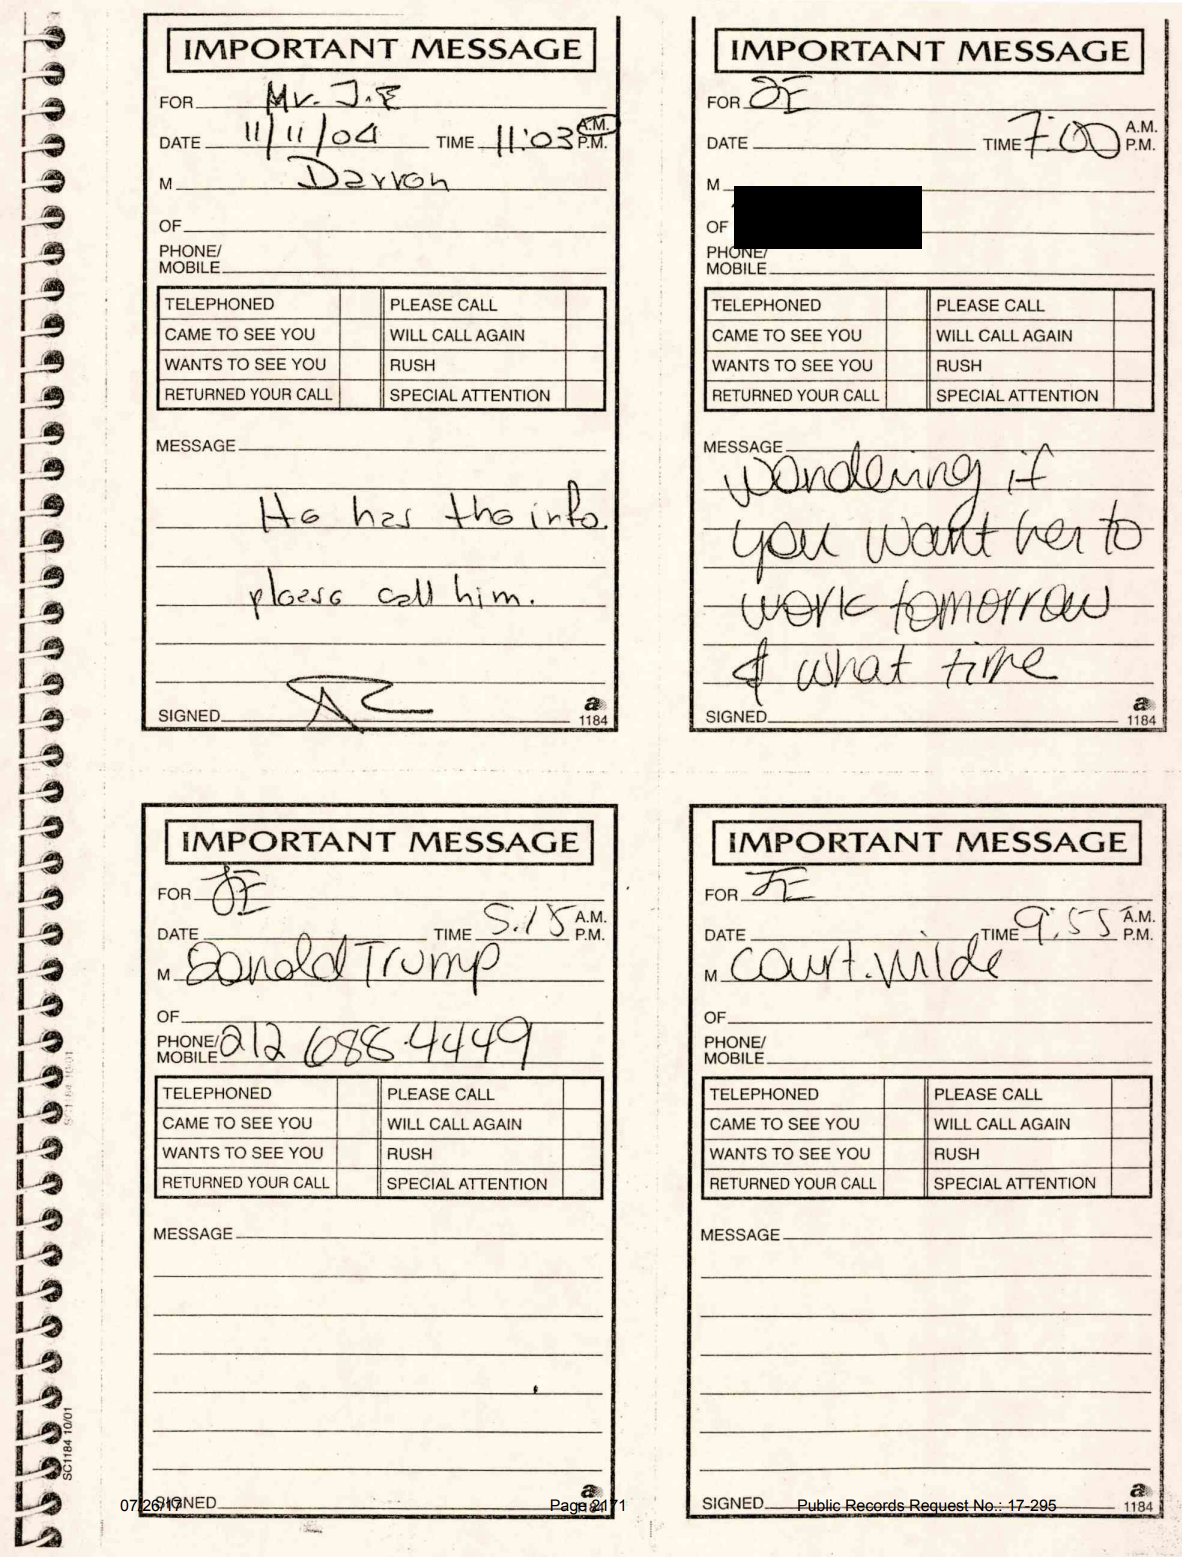 IMPORTANT MESSAGE
FOR Mr. J.E
DATE 11/11/04 TIME 11:03 A.M. P.M.
M Darren
OF
PHONE/
MOBILE
TELEPHONED PLEASE CALL
CAME TO SEE YOU WILL CALL AGAIN
WANTS TO SEE YOU RUSH
RETURNED YOUR CALL SPECIAL ATTENTION
MESSAGE
He has the info.
please call him.
SIGNED
a
1184
IMPORTANT MESSAGE
FOR JE
DATE TIME 7:00 A.M. P.M.
M
OF
PHONE/
MOBILE
TELEPHONED PLEASE CALL
CAME TO SEE YOU WILL CALL AGAIN
WANTS TO SEE YOU RUSH
RETURNED YOUR CALL SPECIAL ATTENTION
MESSAGE
wondering if
you want her to
work tomorrow
& what time
SIGNED
a
1184
IMPORTANT MESSAGE
FOR JE
DATE TIME 5:15 A.M. P.M.
M Donald Trump
OF
PHONE/
MOBILE 212 688-4449
TELEPHONED PLEASE CALL
CAME TO SEE YOU WILL CALL AGAIN
WANTS TO SEE YOU RUSH
RETURNED YOUR CALL SPECIAL ATTENTION
MESSAGE
SIGNED
a
1184
IMPORTANT MESSAGE
FOR JE
DATE TIME 9:55 A.M. P.M.
M Court. Wilde
OF
PHONE/
MOBILE
TELEPHONED PLEASE CALL
CAME TO SEE YOU WILL CALL AGAIN
WANTS TO SEE YOU RUSH
RETURNED YOUR CALL SPECIAL ATTENTION
MESSAGE
SIGNED
a
1184
SC1184 10/01
07/26/17 Page 2171 Public Records Request No.: 17-295